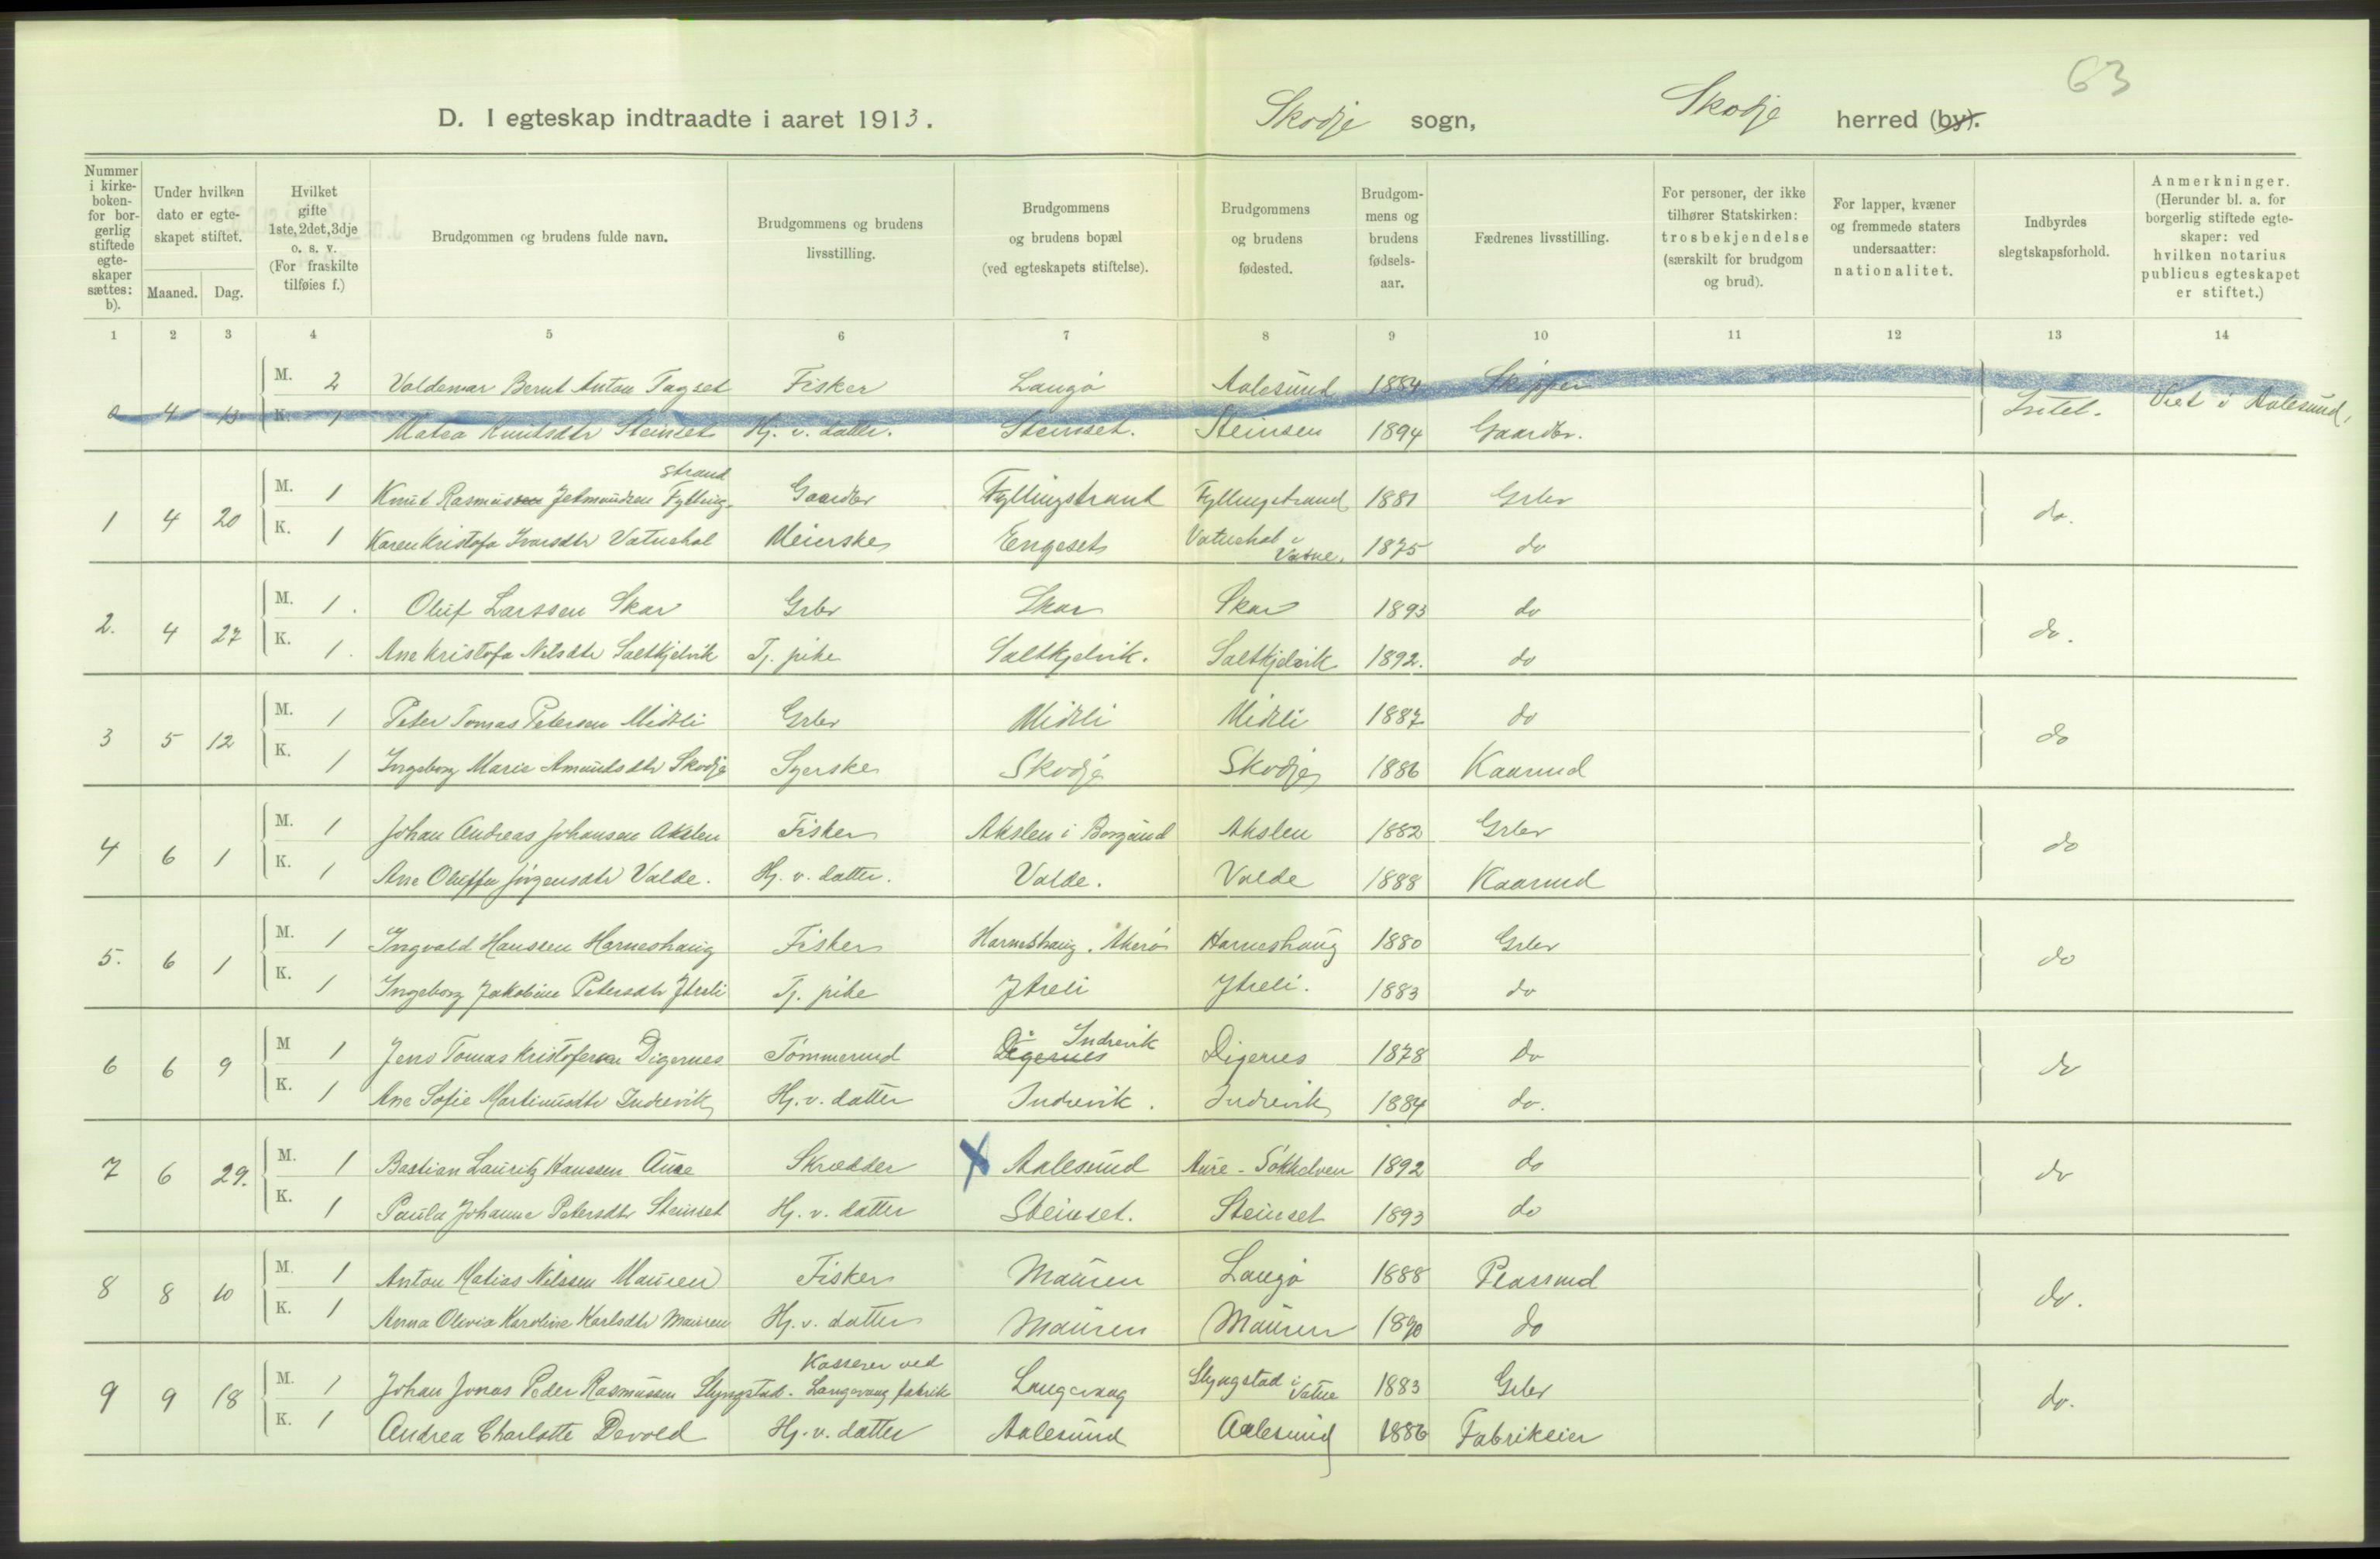 63
D. I egteskap indtraadte i aaret 1913. Skodje sogn, Skodje herred (by).
Nummer i kirke-boken- for bor-gerlig stiftede egte-skaper sættes: b).
Under hvilken dato er egte-skapet stiftet.
Maaned. Dag.
Hvilket gifte 1ste, 2det, 3dje o. s. v. (For fraskilte tilføies f.)
Brudgommen og brudens fulde navn.
Brudgommens og brudens livsstilling.
Brudgommens og brudens bopæl (ved egteskapets stiftelse).
Brudgommens og brudens fødested.
Brudgom-mens og brudens fødsels-aar.
Fædrenes livsstilling.
For personer, der ikke tilhører Statskirken: trosbekjendelse (særskilt for brudgom og brud).
For lapper, kvæner og fremmede staters undersaatter: nationalitet.
Indbyrdes slegtskapsforhold.
Anmerkninger. (Herunder bl. a. for borgerlig stiftede egte-skaper: ved hvilken notarius publicus egteskapet er stiftet.)
1 2 3 4 5 6 7 8 9 10 11 12 13 14
M. 2 Valdemar Bernt Anton Tagset Fisker Langö Aalesund 1884 Skipper
a 4 13 K. 1 Matea Knutsdtr Steinset Hj. v. datter. Steinset. Steinsen 1894 Gaardbr. Intet. Viet i Aalesund,
strand
M. 1 Knut Rasmus Jetmundsen Fylling- Gaardbr Fyllingstrand Fyllingstrand 1881 Grbr
1 4 20 K. 1 Karen Kristofa Ivarsdtr Vatnehol Meierske Engeset Vatnehol i Vatne. 1875 do do.
M. 1. Oluf Larssen Skar Grbr Skar Skar 1893 do
2. 4 27 K. 1. Ane Kristofa Nilsdtr Saltkjelvik Tj. pike Saltkjelvik. Saltkjelvik 1892. do do.
M. 1 Peter Tomas Petersen Midtli Grbr Midtli Midtli 1887 do
3 5 12 K. 1 Ingeborg Marie Amundsdtr Skodje Syerske Skodje Skodje 1886 Kaarmd do
M. 1 Johan Andreas Johansen Akslen Fisker Akslen i Borgund Akslen 1882 Grbr
4 6 1 K. 1 Ane Oluffa Jörgensdtr Valde. Hj. v. datter. Valde. Valde 1888 Kaarmd do
M. 1 Ingvald Hanssen Harneshaug Fisker Harneshaug. Akerö Harneshaug 1880 Grbr
5. 6 1 K. 1 Ingeborg Jakobine Petersdtr Jtreli Tj. pike Jtreli Jtreli. 1883 do do
M 1 Jens Tomas Kristofersen Digernes Tömmermd Digernes Indrevik Digernes 1878 do
6 6 9 K. 1 Ane Sofie Martinusdtr Indrevik Hj. v. datter Indrevik. Indrevik 1884 do. do
M. 1 Bastian Lauritz Hanssen Aure Skrædder X Aalesund Aure - Sökkelven 1892 do
7 6 29. K. 1 Paula Johanne Petersdtr Steinset Hj. v. datter Steinset. Steinset 1893 do do
M. 1 Anton Matias Nilssen Mauren Fisker Mauren Langö 1888 Plassmd
8 8 10 K. 1 Anna Olivia Karoline Karlsdtr Mauren Hj. v. datter Mauren Mauren 1890 do do.
Kasserer ved
M. 1 Johan Jonas Peder Rasmussen Slyngstad. Langevaag fabrik Langevaag Slyngstad i Vatne 1883 Grbr
9 9 18 K. 1 Andrea Charlotte Devold Hj. v. datter Aalesund Aalesund 1886 Fabrikeier do.